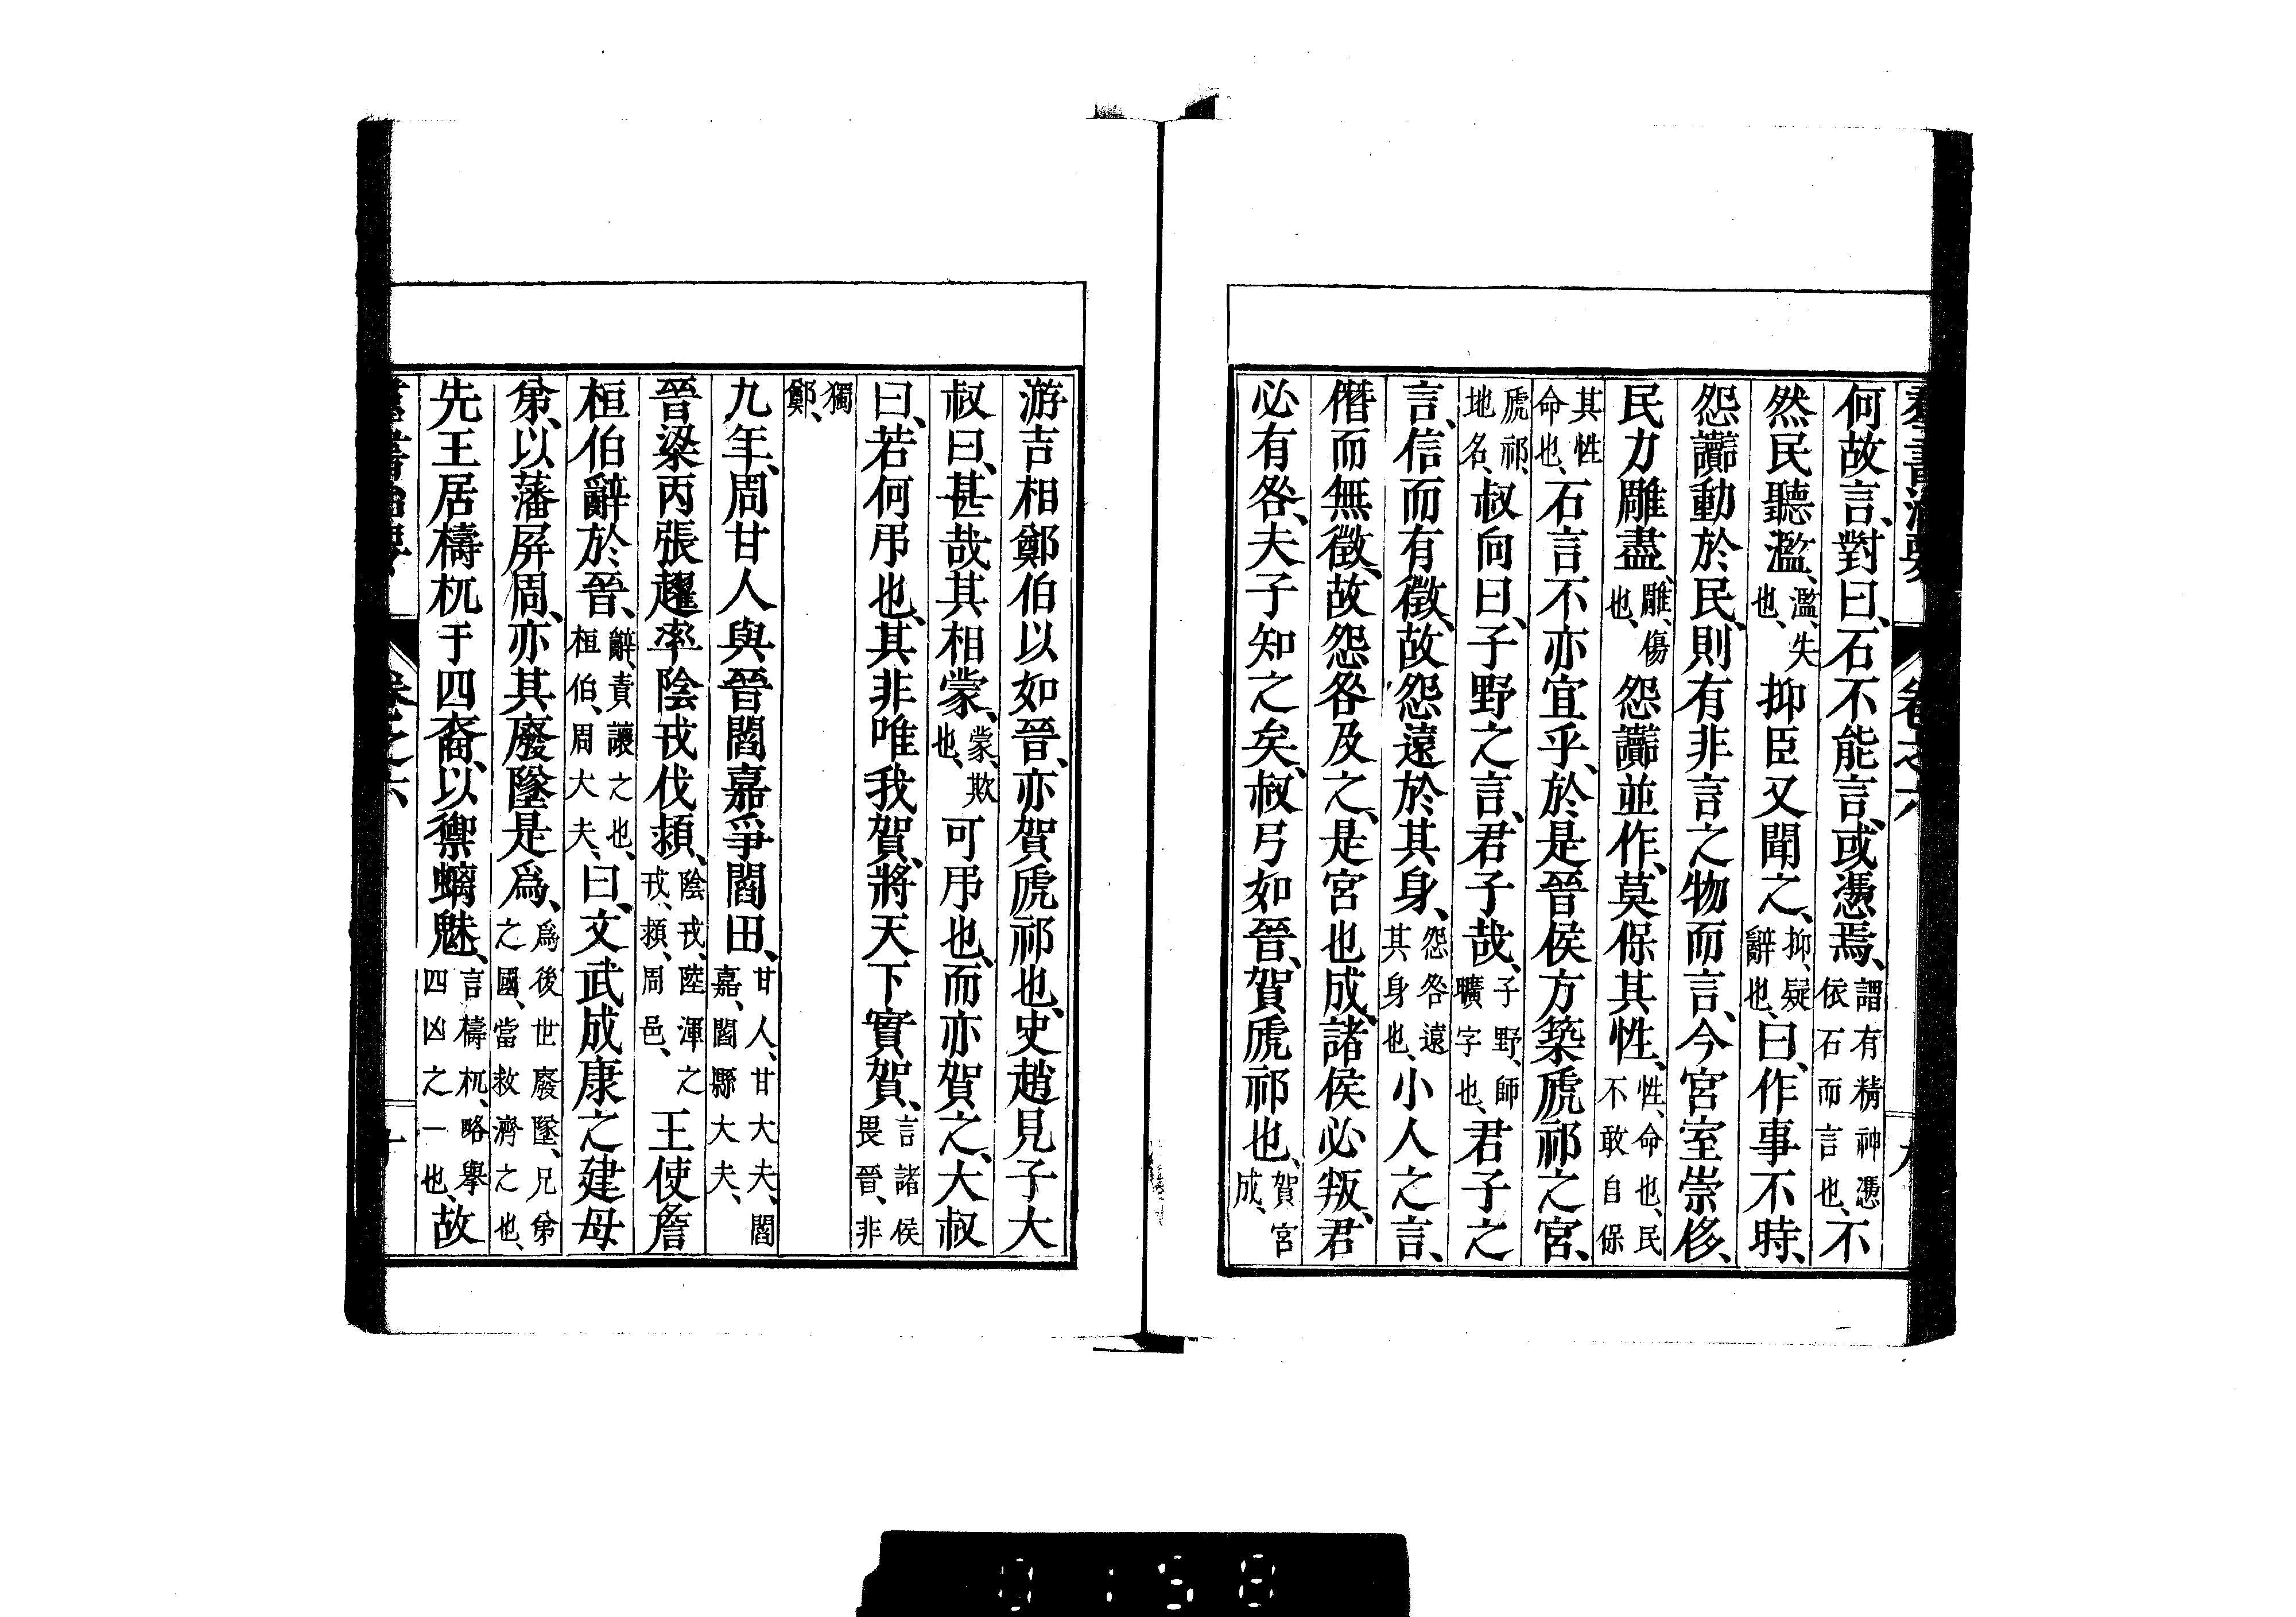 羣書治要 卷之六 九
何故言、對曰、石不能言、或憑焉、謂有精神憑依石而言也、不
然民聽濫、濫、失也、抑臣又聞之、抑、疑辭也、曰、作事不時、
怨讟動於民、則有非言之物而言、今宮室崇侈、
民力雕盡、雕、傷也、怨讟並作、莫保其性、性、命也、民不敢自保
其性命也、石言不亦宜乎、於是晉侯方築虒祁之宮、
虒祁、地名、叔向曰、子野之言、君子哉、子野、師曠字也、君子之
言、信而有徵、故怨遠於其身、怨咎遠其身也、小人之言、
僭而無徵、故怨咎及之、是宮也成、諸侯必叛、君
必有咎、夫子知之矣、叔弓如晉、賀虒祁也、賀宮成、
游吉相鄭伯以如晉、亦賀虒祁也、史趙見子大
叔曰、甚哉其相蒙、蒙、欺也、可弔也、而亦賀之、大叔
曰、若何弔也、其非唯我賀、將天下實賀、言諸侯畏晉、非
獨鄭、
九年、周甘人與晉閻嘉爭閻田、甘人、甘大夫、閻嘉、閻縣大夫、
晉梁丙張趯率陰戎伐潁、陰戎、陸渾之戎、潁、周邑、王使詹
桓伯辭於晉、辭、責讓之也、桓伯、周大夫、曰、文武成康之建母
弟、以藩屏周、亦其廢墜是爲、爲後世廢墜、兄弟之國、當救濟之也、
先王居檮杌于四裔、以禦螭魅、言檮杌、略舉四凶之一也、故
羣書治要 卷之六 十
0158